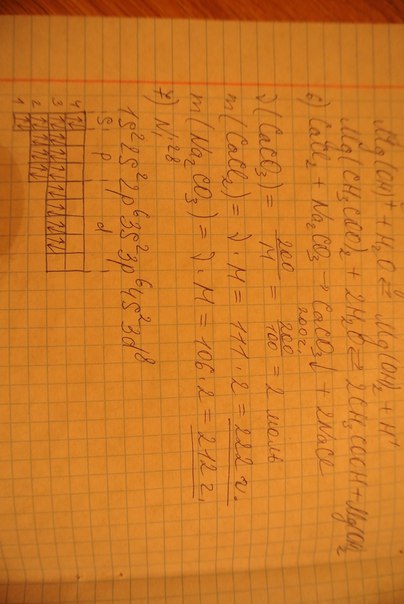 Mg(OH)⁺ + H₂O ⇄ Mg(OH)₂ + H⁺
Mg(CH₃COO)₂ + 2H₂O ⇄ 2CH₃COOH + Mg(OH)₂
6) CaCl₂ + Na₂CO₃ → CaCO₃↓ + 2NaCl
200г.
ν(CaCO₃) = 200/M = 200/100 = 2 моль
m(CaCl₂) = ν · M = 111 · 2 = 222 г.
m(Na₂CO₃) = ν · M = 106 · 2 = 212 г.
7) Ni 28
1s²2s²2p⁶3s²3p⁶4s²3d⁸
s p d
4
3
2
1